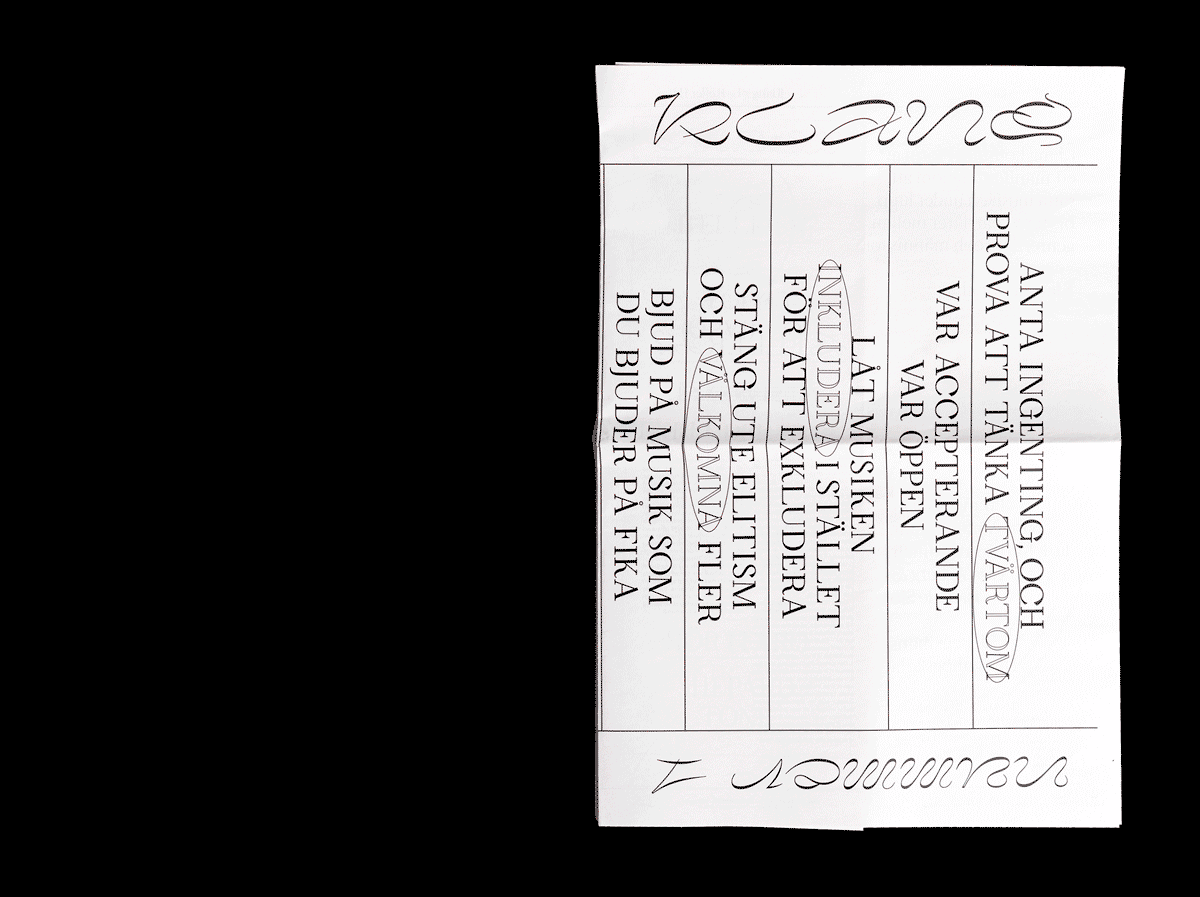 klang
ANTA INGENTING, OCH
PROVA ATT TÄNKA TVÄRTOM
VAR ACCEPTERANDE
VAR ÖPPEN
LÅT MUSIKEN
INKLUDERA I STÄLLET
FÖR ATT EXKLUDERA
STÄNG UTE ELITISM
OCH VÄLKOMNA FLER
BJUD PÅ MUSIK SOM
DU BJUDER PÅ FIKA
nummer 1